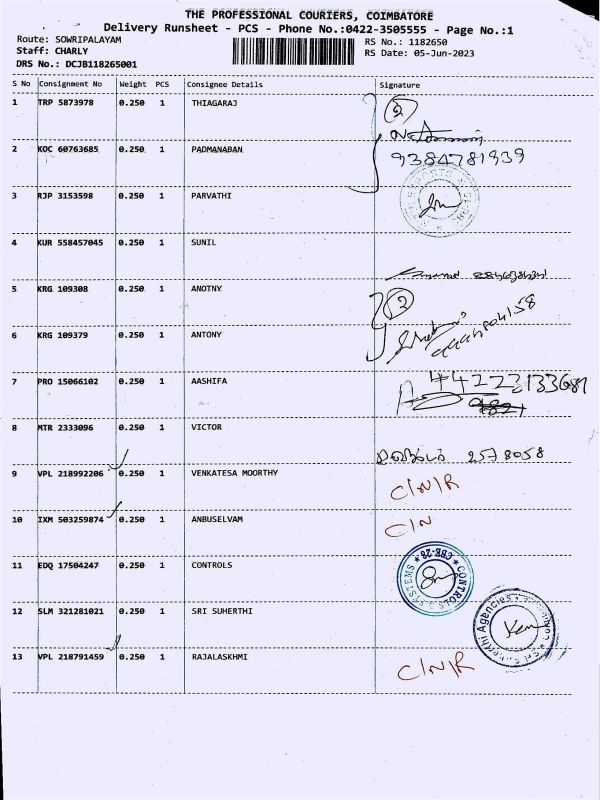 THE PROFESSIONAL COURIERS, COIMBATORE
Delivery Runsheet - PCS - Phone No.:0422-3505555 - Page No.:1
Route: SOWRIPALAYAM
RS No.: 1182650
Staff: CHARLY
RS Date: 05-Jun-2023
DRS No.: DCJB118265001
S No Consignment No Weight PCS Consignee Details Signature
1 TRP 5873978 0.250 1 THIAGARAJ 2
2 KOC 60763685 0.250 1 PADMANABAN 9384781939
3 RJP 3153598 0.250 1 PARVATHI
4 KUR 558457045 0.250 1 SUNIL
5 KRG 109308 0.250 1 ANOTNY 2
6 KRG 109379 0.250 1 ANTONY
7 PRO 15066102 0.250 1 AASHIFA
8 MTR 2333096 0.250 1 VICTOR 2578058
9 VPL 218992206 0.250 1 VENKATESA MOORTHY C/N/R
10 IXM 503259874 0.250 1 ANBUSELVAM C/N
11 EDQ 17504247 0.250 1 CONTROLS CONTROLS SYSTEMS CBE-28
12 SLM 321281021 0.250 1 SRI SUHERTHI Agencies
13 VPL 218791459 0.250 1 RAJALASKHMI C/N/R